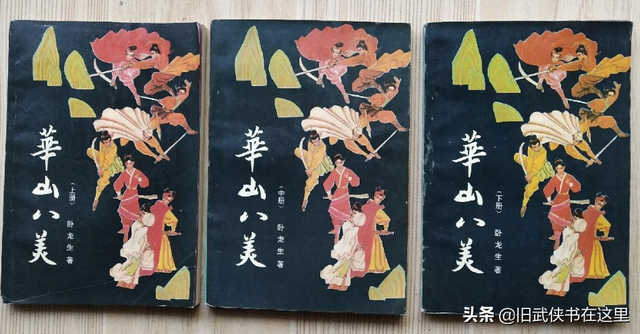 華山八美
（上册）
卧龙生著
華山八美
（中册）
卧龙生著
華山八美
（下册）
卧龙生著
头条 @旧武侠书在这里